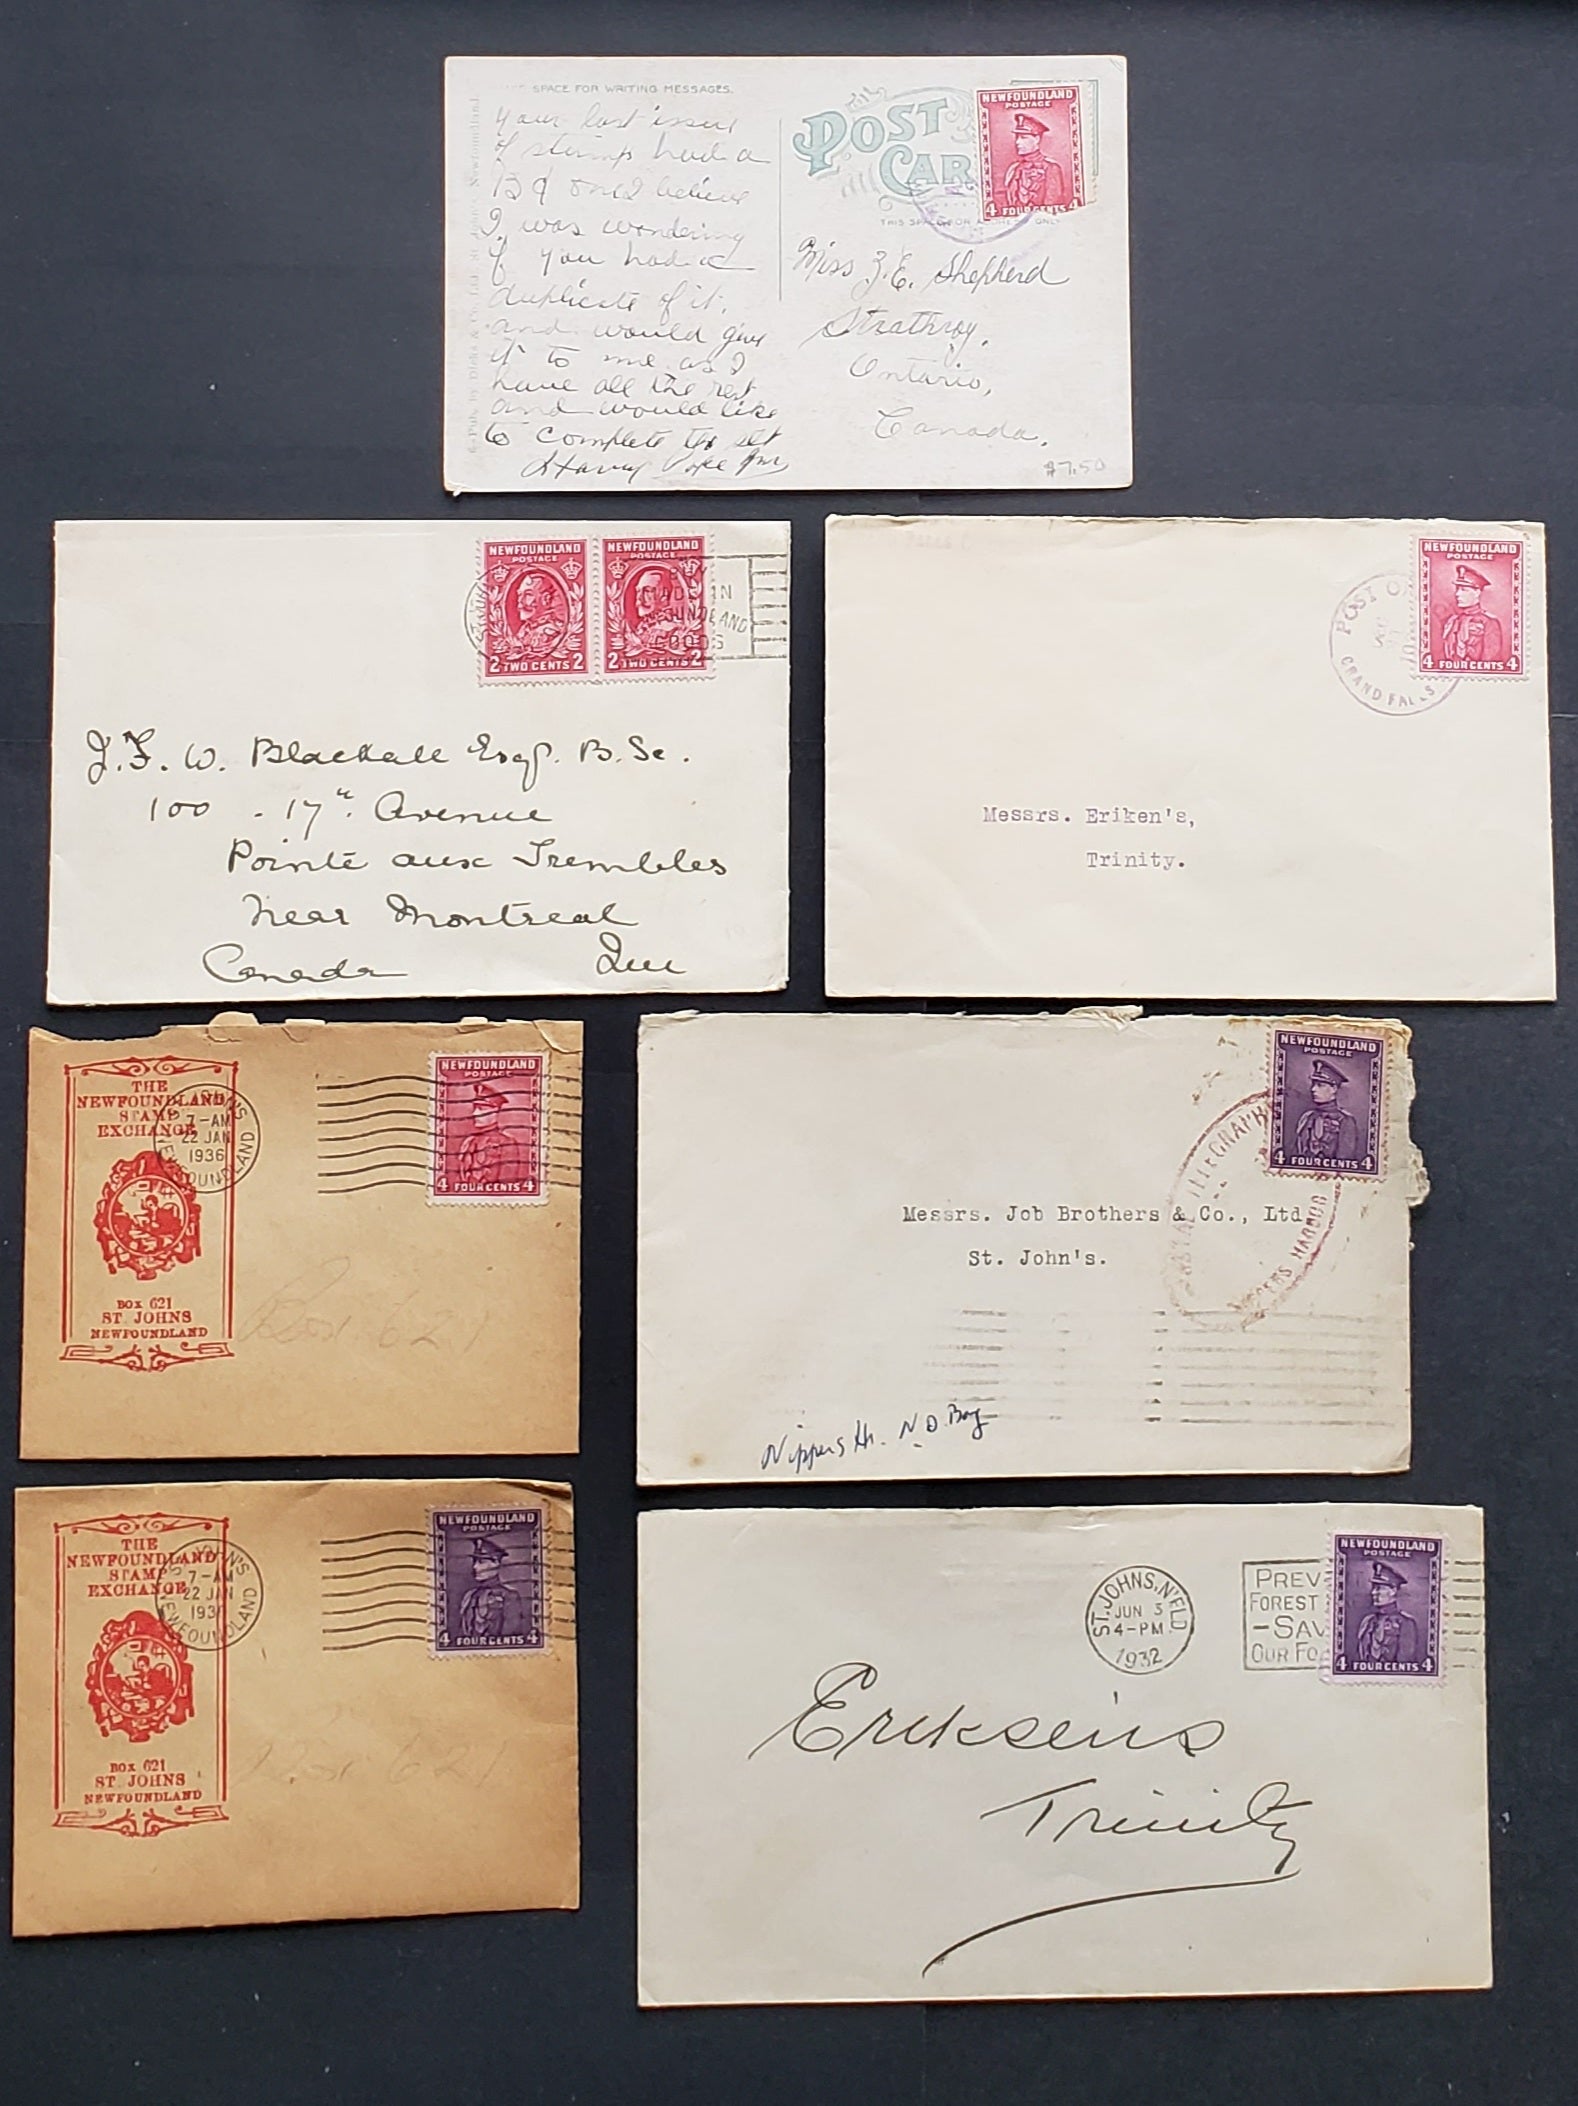 SPACE FOR WRITING MESSAGES.
Your last issue
of stamps had a
15 ¢ one I believe
I was wondering
if you had a
duplicate of it,
and would give
it to me as I
have all the rest
and would like
to complete the set
Harry Pope Jnr
Pub. by Dicks & Co., Ltd., St. John's, Newfoundland.
POST CAR
THIS SPACE FOR ADDRESS ONLY
NEWFOUNDLAND
POSTAGE
4 FOUR CENTS 4
Miss Z. E. Shepherd
Strathroy,
Ontario,
Canada.
$7.50
NEWFOUNDLAND
POSTAGE
2 TWO CENTS 2
NEWFOUNDLAND
POSTAGE
2 TWO CENTS 2
MADE IN
GOODS
J. F. W. Blackall Esqr. B. Sc.
100 - 17th. Avenue
Pointe aux Trembles
Near Montreal
Canada Que
NEWFOUNDLAND
POSTAGE
4 FOUR CENTS 4
POST
GRAND FALLS
Messrs. Eriken's,
Trinity.
THE
NEWFOUNDLAND
STAMP
EXCHANGE
BOX 621
ST. JOHNS
NEWFOUNDLAND
7-AM
22 JAN
1936
NEWFOUNDLAND
NEWFOUNDLAND
POSTAGE
4 FOUR CENTS 4
Box 621
NEWFOUNDLAND
POSTAGE
4 FOUR CENTS 4
POSTAL TELEGRAPH
NIPPERS HARBOUR
Messrs. Job Brothers & Co., Ltd
St. John's.
Nippers Hr. N. D. Bay
THE
NEWFOUNDLAND
STAMP
EXCHANGE
BOX 621
ST. JOHNS
NEWFOUNDLAND
ST. JOHN'S
7-AM
22 JAN
1936
NEWFOUNDLAND
NEWFOUNDLAND
POSTAGE
4 FOUR CENTS 4
Box 621
ST. JOHNS, N'FLD.
JUN 3
4-PM
1932
PREV
FOREST
-SAV
OUR FO
NEWFOUNDLAND
POSTAGE
4 FOUR CENTS 4
Eriksen's
Trinity